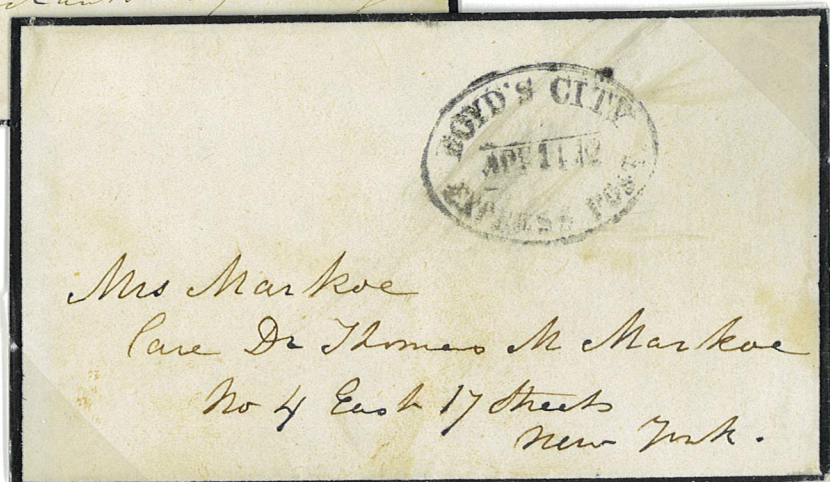 BOYD'S CITY
APR 11 12
EXPRESS POST
Mrs Markoe
Care Dr Thomas M Markoe
No 4 East 17 Streets
New York.